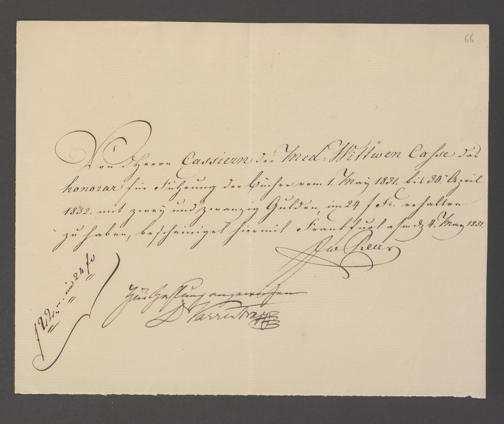 66
Von Herrn Cassiern der Med. Wittwen Casse das
honorar für Führung der Bücher vom 1. May 1831. bis 30. April
1832. mit zwey und zwanzig Gulden, im 24 f Fu. erhalten
zu haben, bescheiniget hiermit Frankfurt a/m d. 4. May 1831.
f 22.— im 24 f
Zur Zahlung angewiesen
Dr